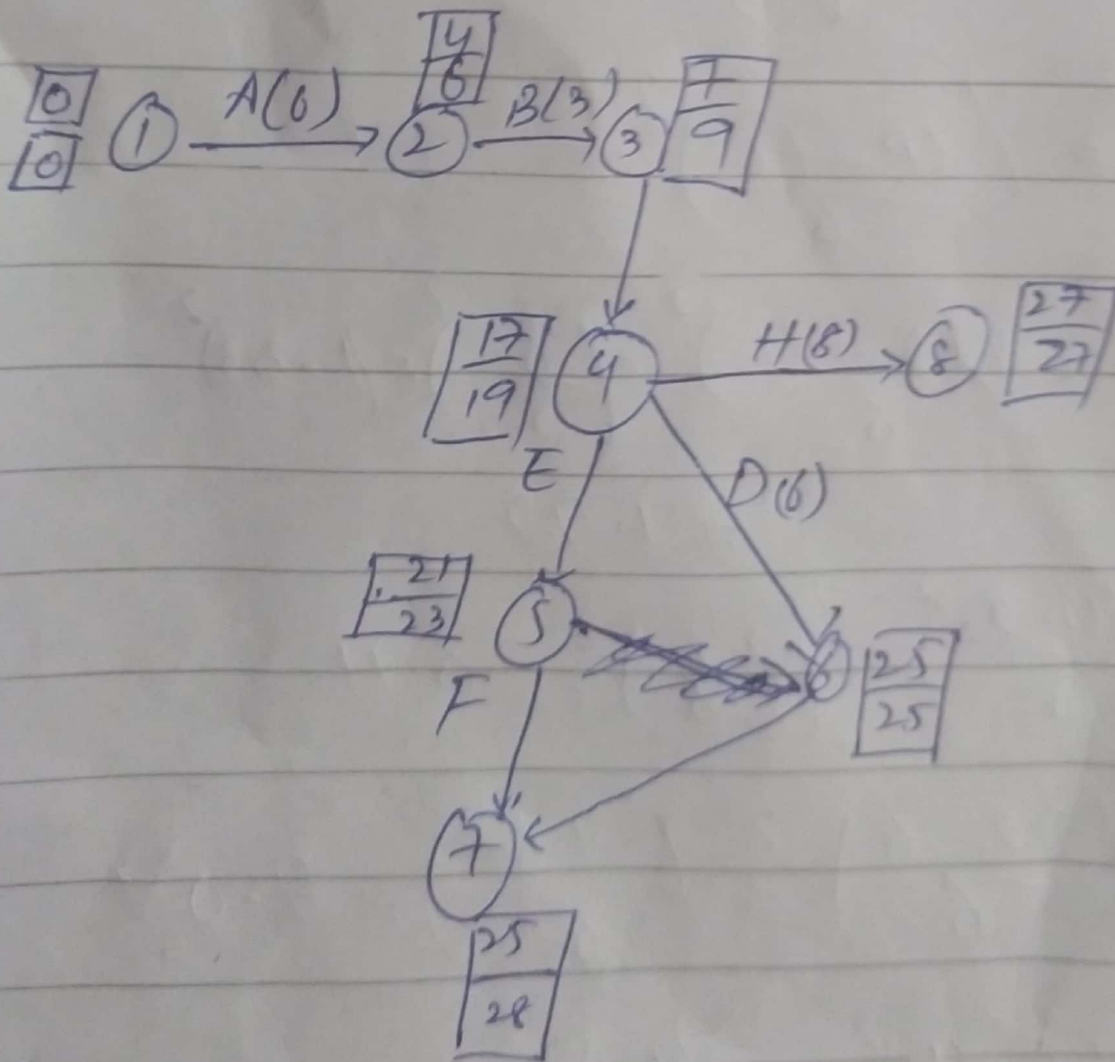 4
6
0
0
1
A(6)
2
B(3)
3
7
9
17
19
4
H(8)
8
27
27
E
D(6)
21
23
5
6
25
25
F
7
25
28